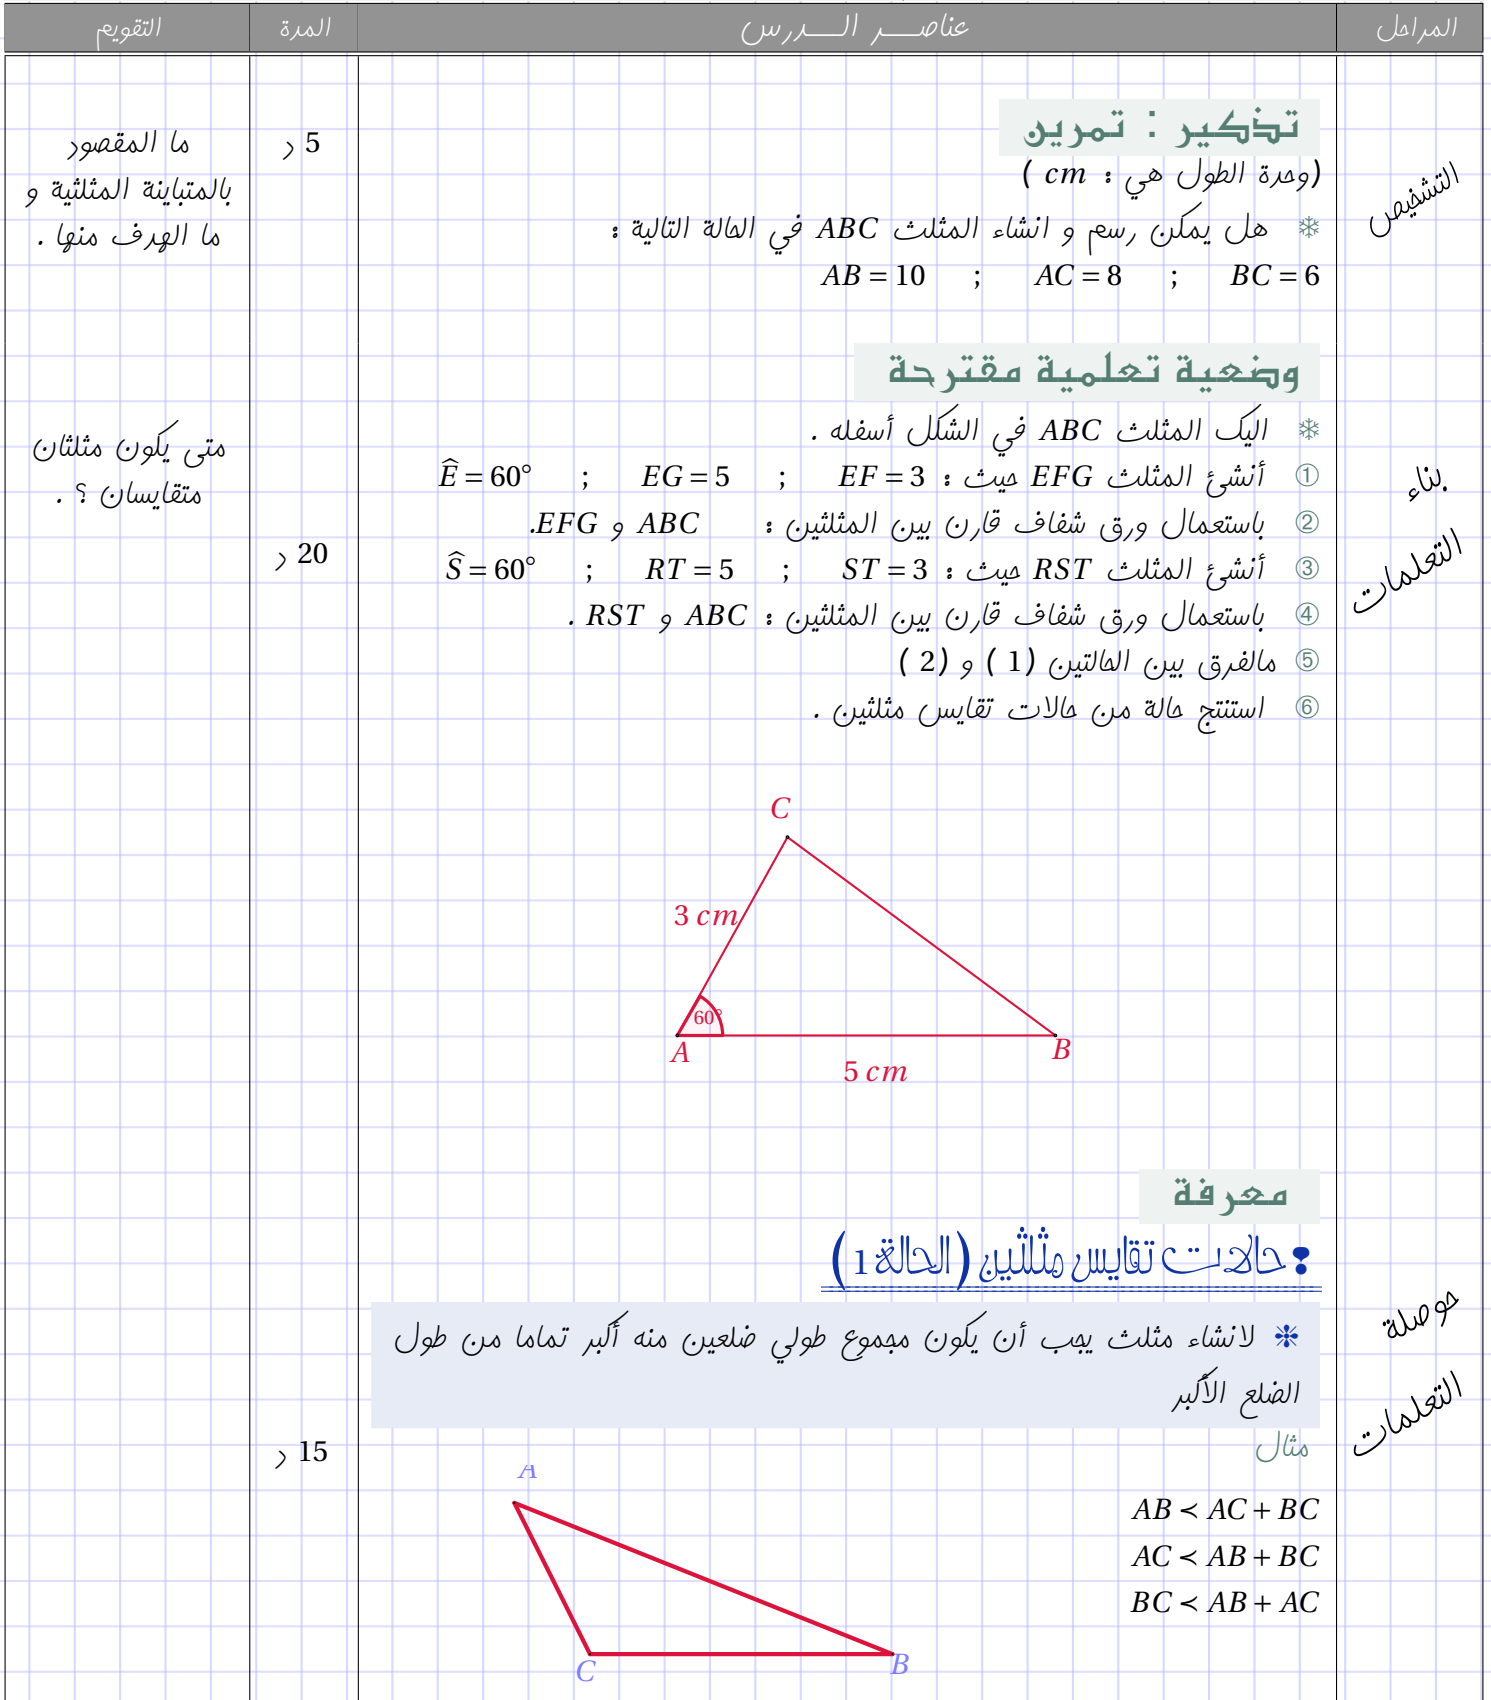 المراحل
عناصر الدرس
المدة
التقويم
التشخيص
تذكير : تمرين
(وحدة الطول هي : cm )
❄ هل يمكن رسم و انشاء المثلث ABC في الحالة التالية :
AB = 10 ; AC = 8 ; BC = 6
5 د
ما المقصود
بالمتباينة المثلثية و
ما الهدف منها .
بناء
التعلمات
وضعية تعلمية مقترحة
❄ اليك المثلث ABC في الشكل أسفله .
① أنشئ المثلث EFG حيث : EF = 3 ; EG = 5 ; Ê = 60°
② باستعمال ورق شفاف قارن بين المثلثين : ABC و EFG.
③ أنشئ المثلث RST حيث : ST = 3 ; RT = 5 ; Ŝ = 60°
④ باستعمال ورق شفاف قارن بين المثلثين : ABC و RST .
⑤ مالفرق بين الحالتين (1 ) و (2 )
⑥ استنتج حالة من حالات تقايس مثلثين .
20 د
متى يكون مثلثان
متقايسان ؟ .
C
3 cm
60°
A
B
5 cm
حوصلة
التعلمات
معرفة
حالات تقايس مثلثين (الحالة 1)
❉ لانشاء مثلث يجب أن يكون مجموع طولي ضلعين منه أكبر تماما من طول
الضلع الأكبر
مثال
15 د
AB < AC + BC
AC < AB + BC
BC < AB + AC
A
C
B